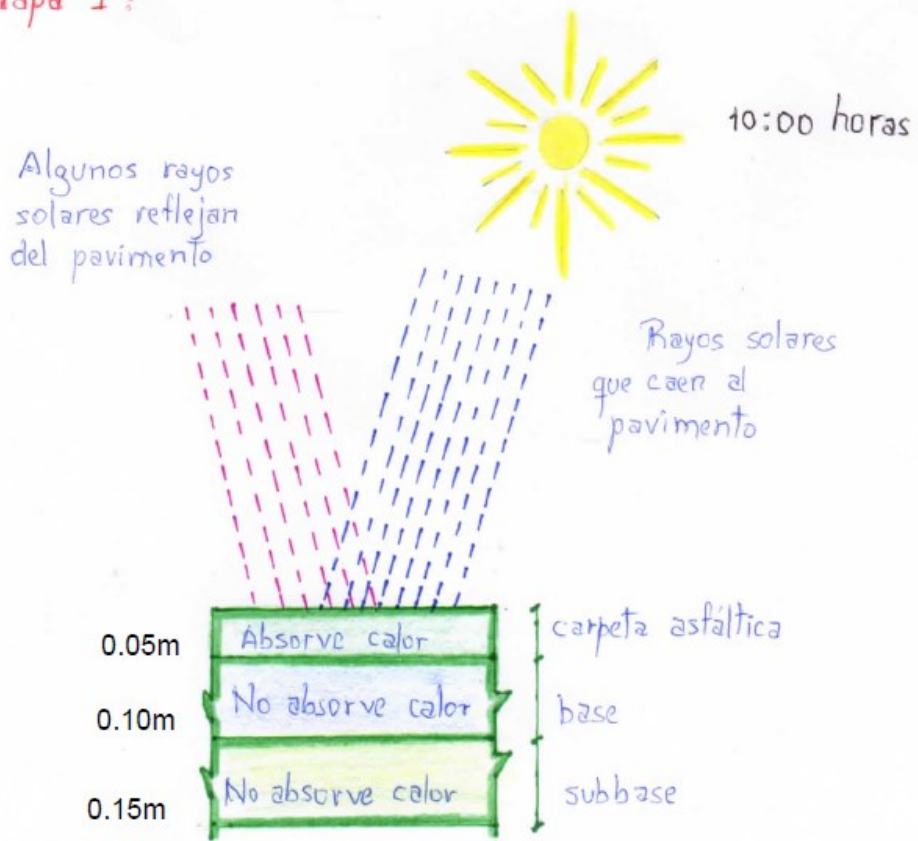 apa 1:
10:00 horas
Algunos rayos
solares reflejan
del pavimento
Rayos solares
que caen al
pavimento
0.05m
Absorve calor
carpeta asfáltica
0.10m
No absorve calor
base
0.15m
No absorve calor
subbase